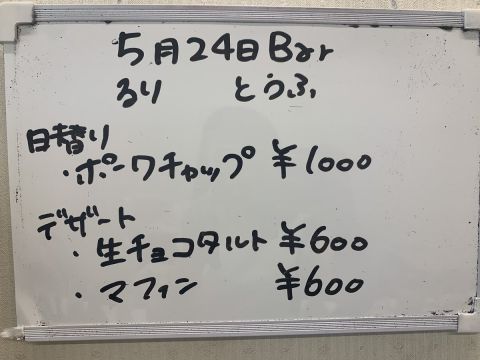 5月24日Bar
るり とうふ
日替り
・ポークチャップ ¥1000
デザート
・生チョコタルト ¥600
・マフィン ¥600